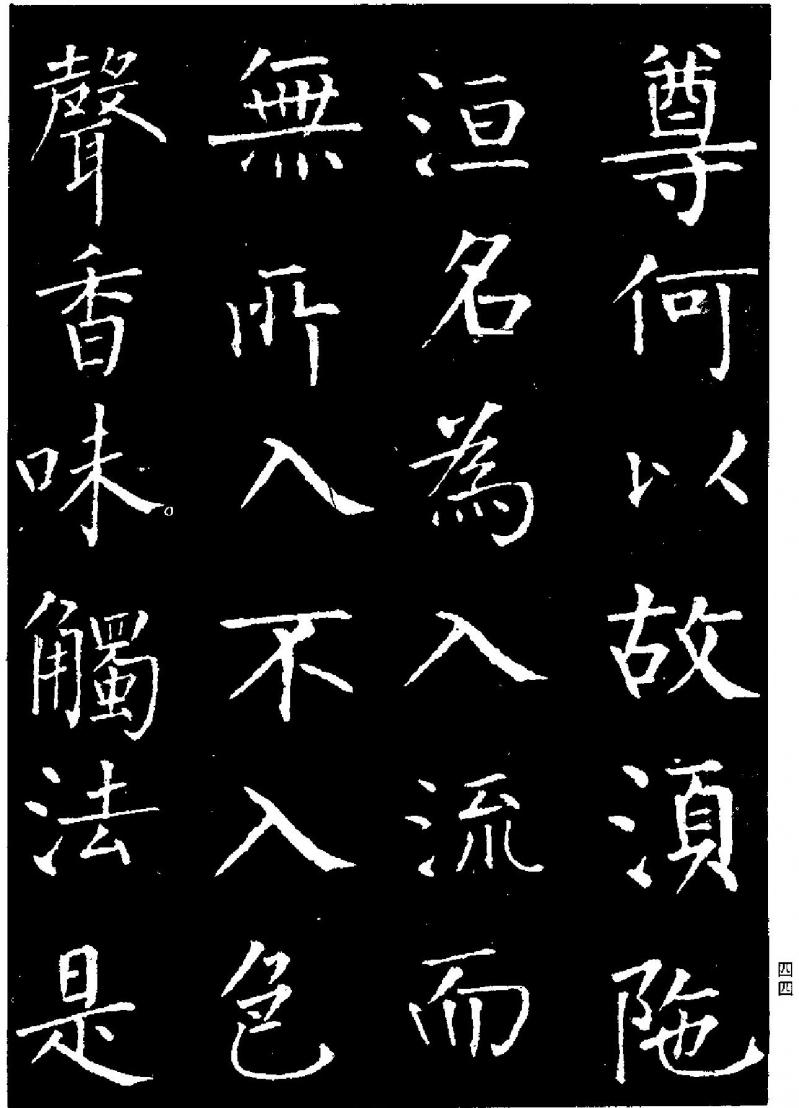 尊何以故須陁
洹名為入流而
無所入不入色
聲香味觸法是
四四